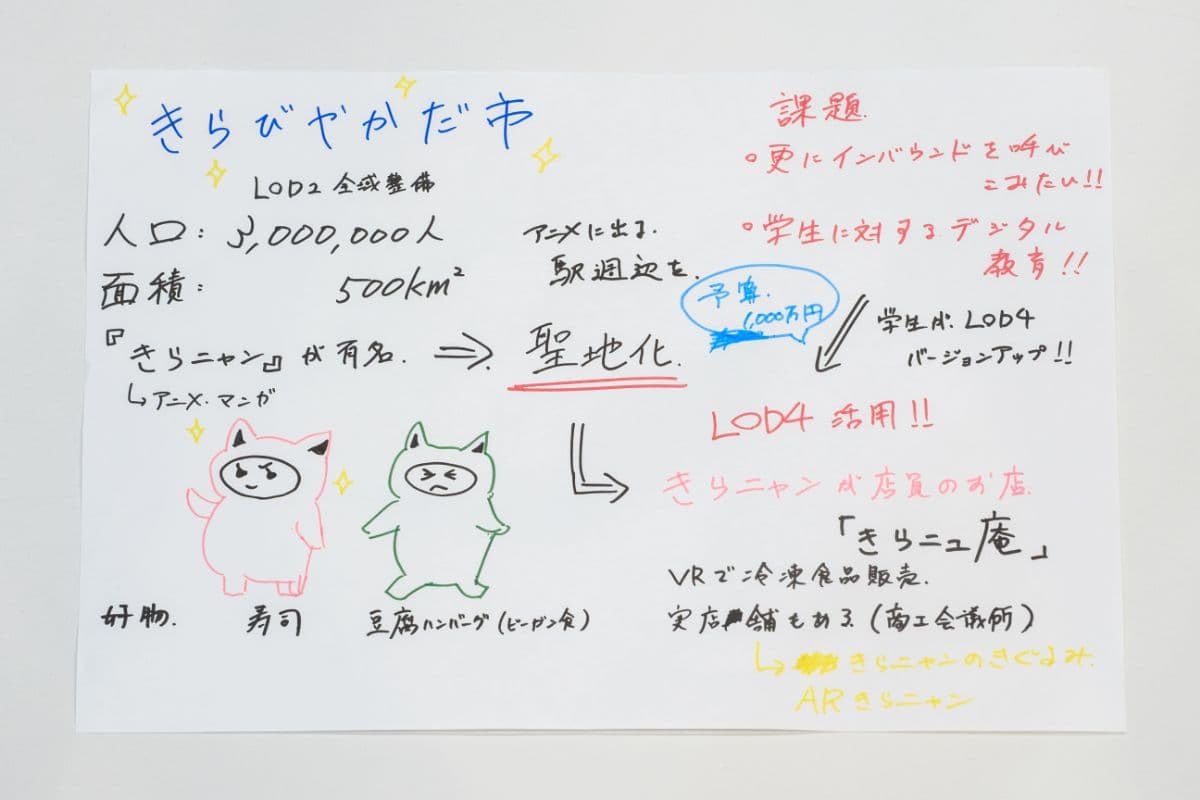 きらびやかだ市
LOD2 全域整備
人口: 3,000,000人
面積: 500km²
『きらニャン』が有名.
↳アニメ・マンガ
⇒
アニメに出る.
駅週辺を.
聖地化.
課題.
○更にインバウンドを呼び
こみたい!!
○学生に対するデジタル
教育!!
予算.
1,000万円
学生が. LOD4
バージョンアップ!!
LOD4 活用!!
きらニャンが店員のお店.
「きらニュ庵」
VRで冷凍食品販売.
実店舗もある(商工会議所)
↳きらニャンのきぐるみ.
ARきらニャン
好物. 寿司 豆腐ハンバーグ(ビーガン食)